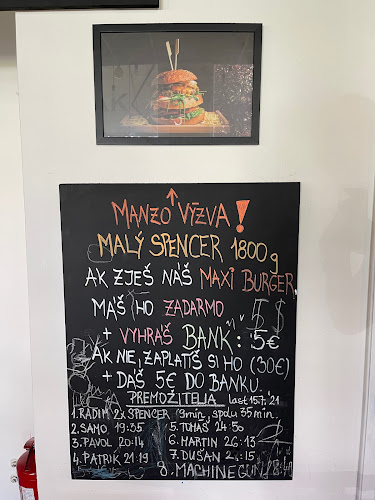 MANZO VÝZVA!
MALÝ SPENCER 1800g
AK ZJEŠ NÁŠ MAXI BURGER
MÁŠ HO ZADARMO
+ VYHRÁŠ BANK: 5€
AK NIE, ZAPLATÍŠ SI HO (30€)
+ DÁŠ 5€ DO BANKU.
PREMOŽITELIA last 15.7.'21
1. RADIM 2x SPENCER 9min, spolu 35min.
2. SAMO 19:35 5. TOMÁŠ 24:50
3. PAVOL 20:14 6. MARTIN 26:13
4. PATRIK 21:19 7. DUŠAN
8. MACHINEGUN